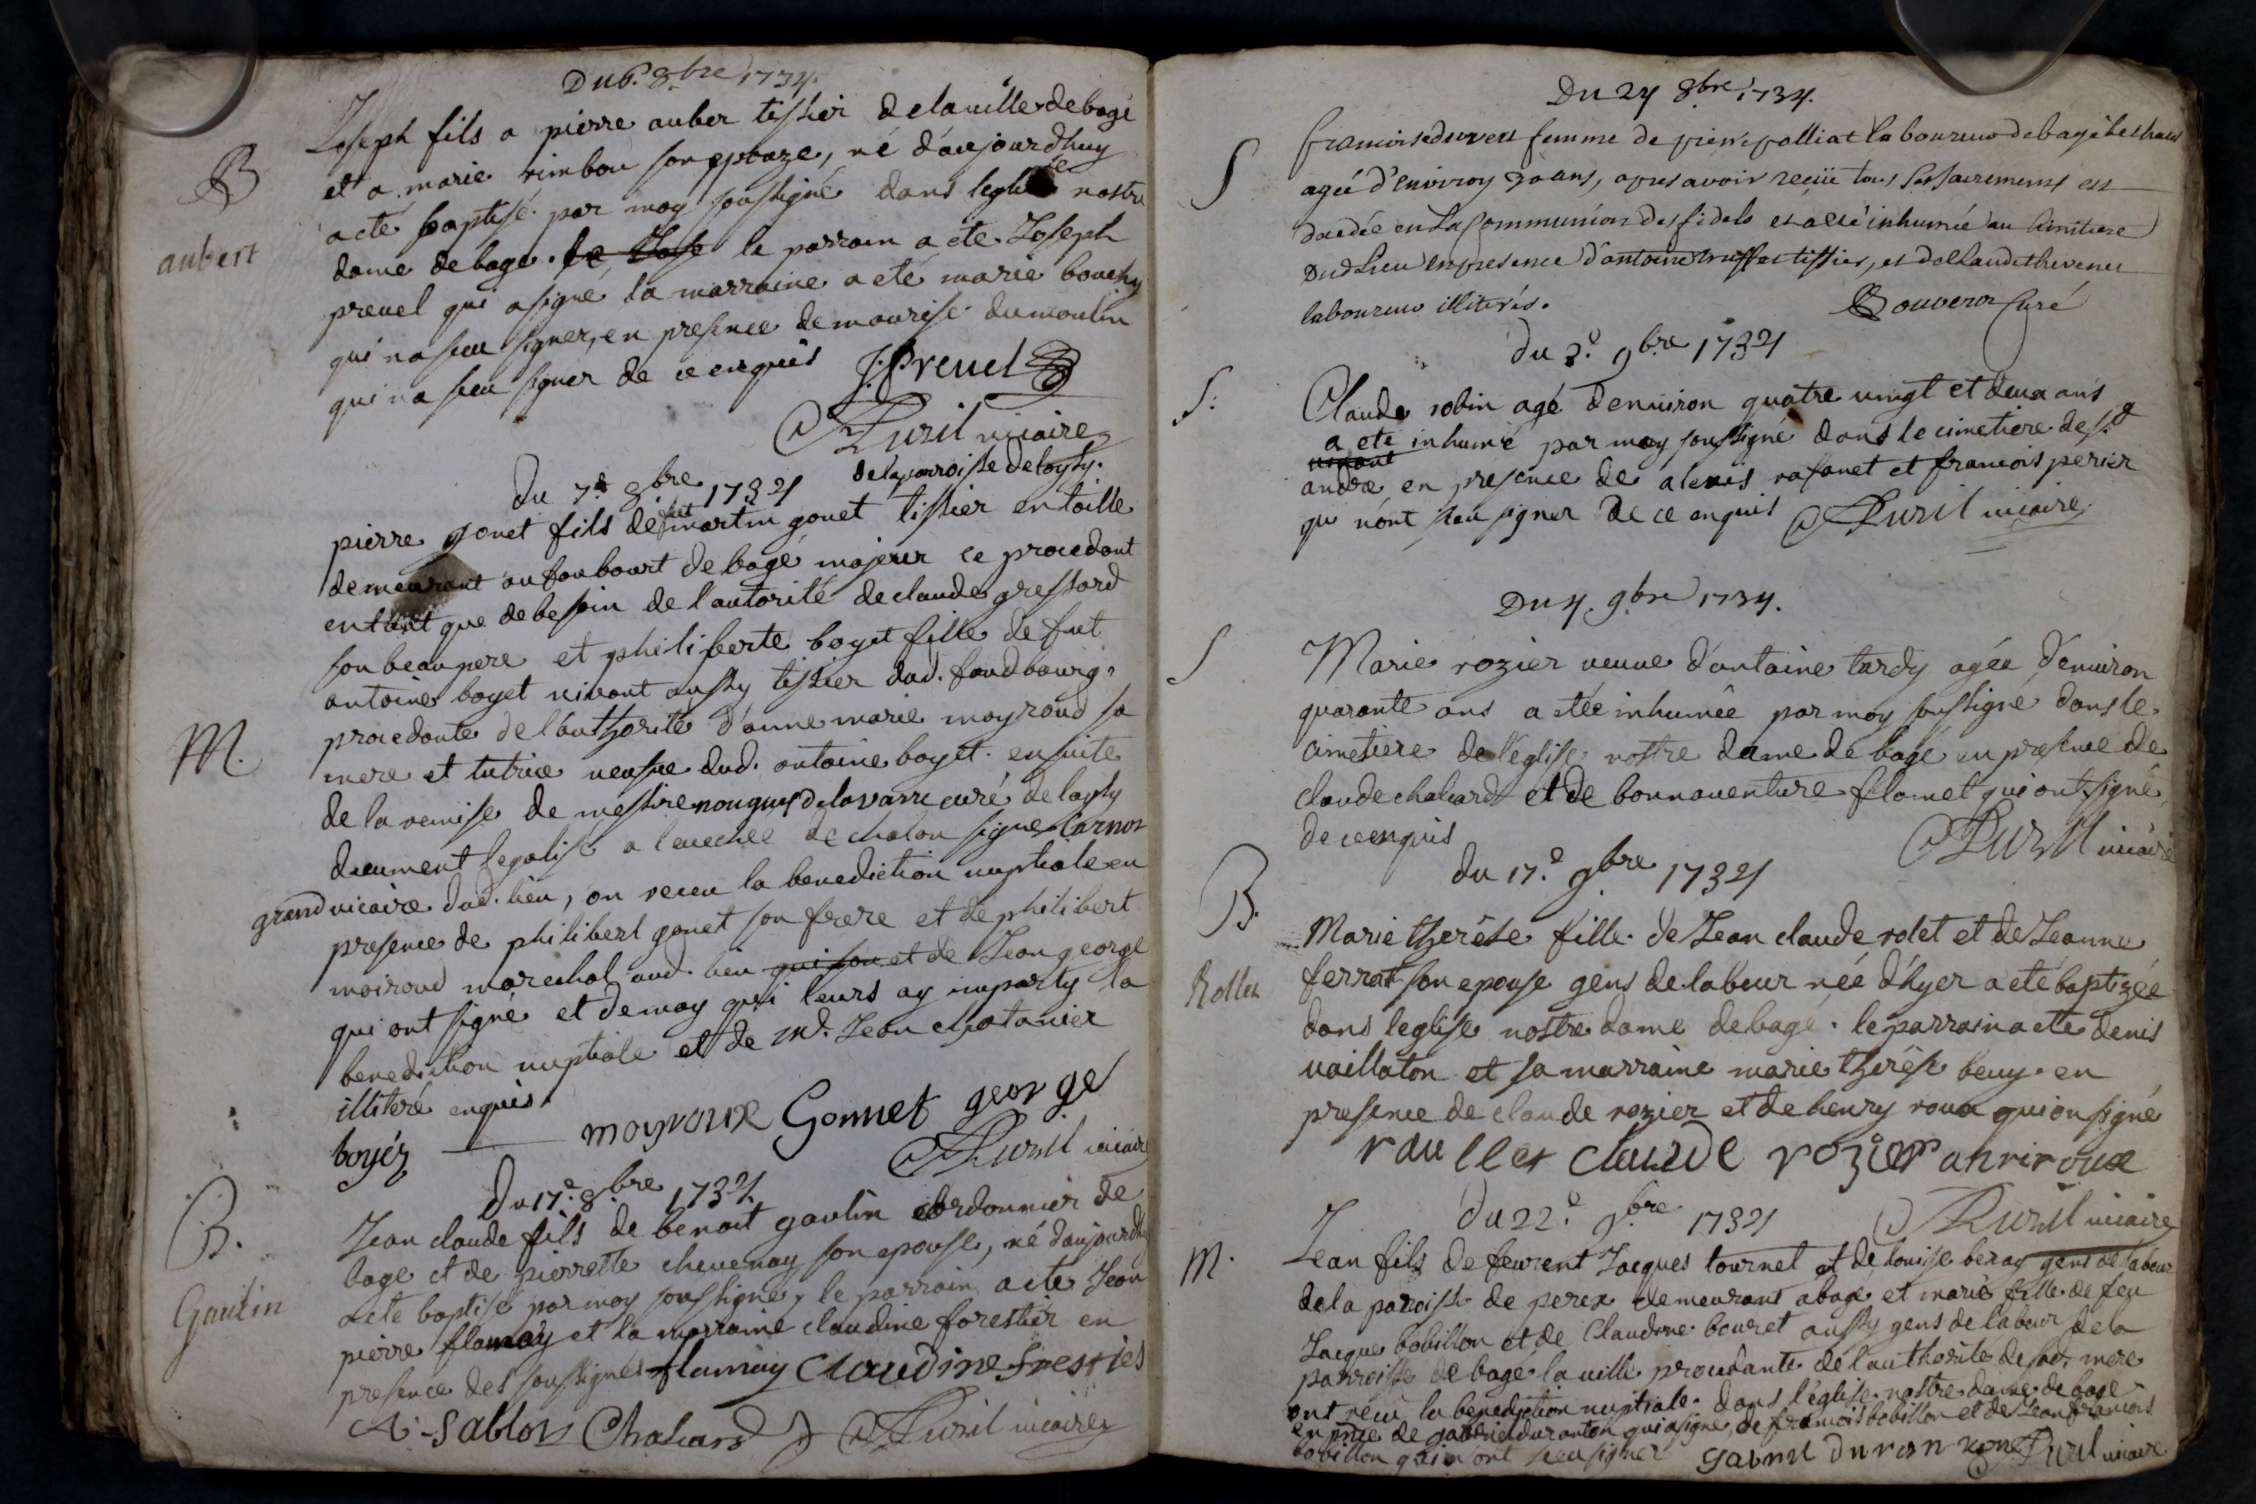 Du 6. 8bre 1734.
Joseph fils a pierre auber tissier de la ville de bagé
et a marie rimbou son epouze, né d'aujourdhuy
B
a eté baptisé par moy soussigné dans leglise nostre
aubert
dame de bagé. le parrain a ete Joseph
prevel qui a signé la marraine a eté marie bouchy
qui na sceu signer, en presence de maurise dumoulin
qui na sceu signer de ce enquis J. Prevel
Puzil vicaire
Du 7e 8bre 1734 de la parroisse de loysy.
pierre gonet fils de fut martin gonet tissier en toille
demeurant au foubourt de bagé majeur ce procedant
entant que de besoin de l'autorité de claude gressard
son beaupere et philiberte boyet fille de fut
antoine boyet vivant aussy tissier dud. foudbourg
M.
procedante de l'authorité d'anne marie moyroud sa
mere et tutrice veufve dud. antoine boyet. ensuite
de la remise de messire nougues delavarre curé de loysy
ducument legalisé a leveche de chalon signe Carnot
grand vicaire dud. lieu, on receu la benediction nuptiale en
presence de philibert gonet son frere et de philibert
moiroud marechal aud. lieu qui son et de Jean george
qui ont signé et de moy qui leurs ay imparty la
benediction nuptiale et de md. Jean chatanier
illiteré enquis
boyéz moyroux Gonnet george
Puzil vicaire
Du 17e. 8bre 1734.
B.
Jean claude fils de benoit gautin cordonnier de
bage et de pierrette chevenay son epouse, né d'aujourdhuy
Gautin
a ete baptisé par moy soussigné, le parrain a ete Jean
pierre flamay et la marraine claudine forestier en
presence des soussignés flamay Claudine frestier
Sablon Chaliard Puzil vicaire
Du 24 8bre 1734.
S
francoise duvert femme de pierre polliat laboureur de bagé le chatel
agée d'environ 30 ans, apres avoir reçüe tous ses sacrements est
decedée en la communion des fidels et a eté inhumée au simitiere
dud lieu en presence d'antoine truffet tissier, et de claude thevenet
laboureur illiterés. Bouveror Curé
du 3e. 9bre 1734
S.
Claude robin agé d'environ quatre vingt et deux ans
a eté inhumé par moy soussigné dans le cimetiere de st
andré en presence de alexis rafanet et francois perier
qu n'ont sceu signer de ce enquis Puzil vicaire
Du 4. 9bre 1734.
S
Marie rozier veuve d'antoine tardy agée d'environ
quarante ans a etée inhumée par moy soussigné dans le
cimetiere de l'eglise nostre dame de bagé en presence de
claude chaliard et de bonnaventure flamet qui ont signé
de ce enquis Puzil vicaire
du 17e. 9bre 1734
B.
Marie therése fille de Jean claude rolet et de Jeanne
Rollet
ferrat son epouse gens de labeur née d'hyer a eté baptizée
dans leglise nostre dame de bagé. le parrain a ete denis
vaillaton et sa marraine marie therése beuy en
presence de claude rozier et de henry roux qui on signé
claude rozier anriroux
du 22e. 9bre 1734 Puzil vicaire
M.
Jean fils de feurent Jacques tournet et de louise beray gens de labeur
de la parroisse de perex demeurant a bagé et marie fille de feu
Jacque bobillon et de Claudine bouret aussy gens de labeur de la
parroisse de bagé la ville procedante de l'authorité de sad. mere
ont reçu la benediction nuptiale dans l'église nostre dame de bagé
en pnce de gabriel duranton qui a signé, de francois bobillon et de Jean francois
bobillon qui n'ont sceu signer gabriel duranton Puzil vicaire